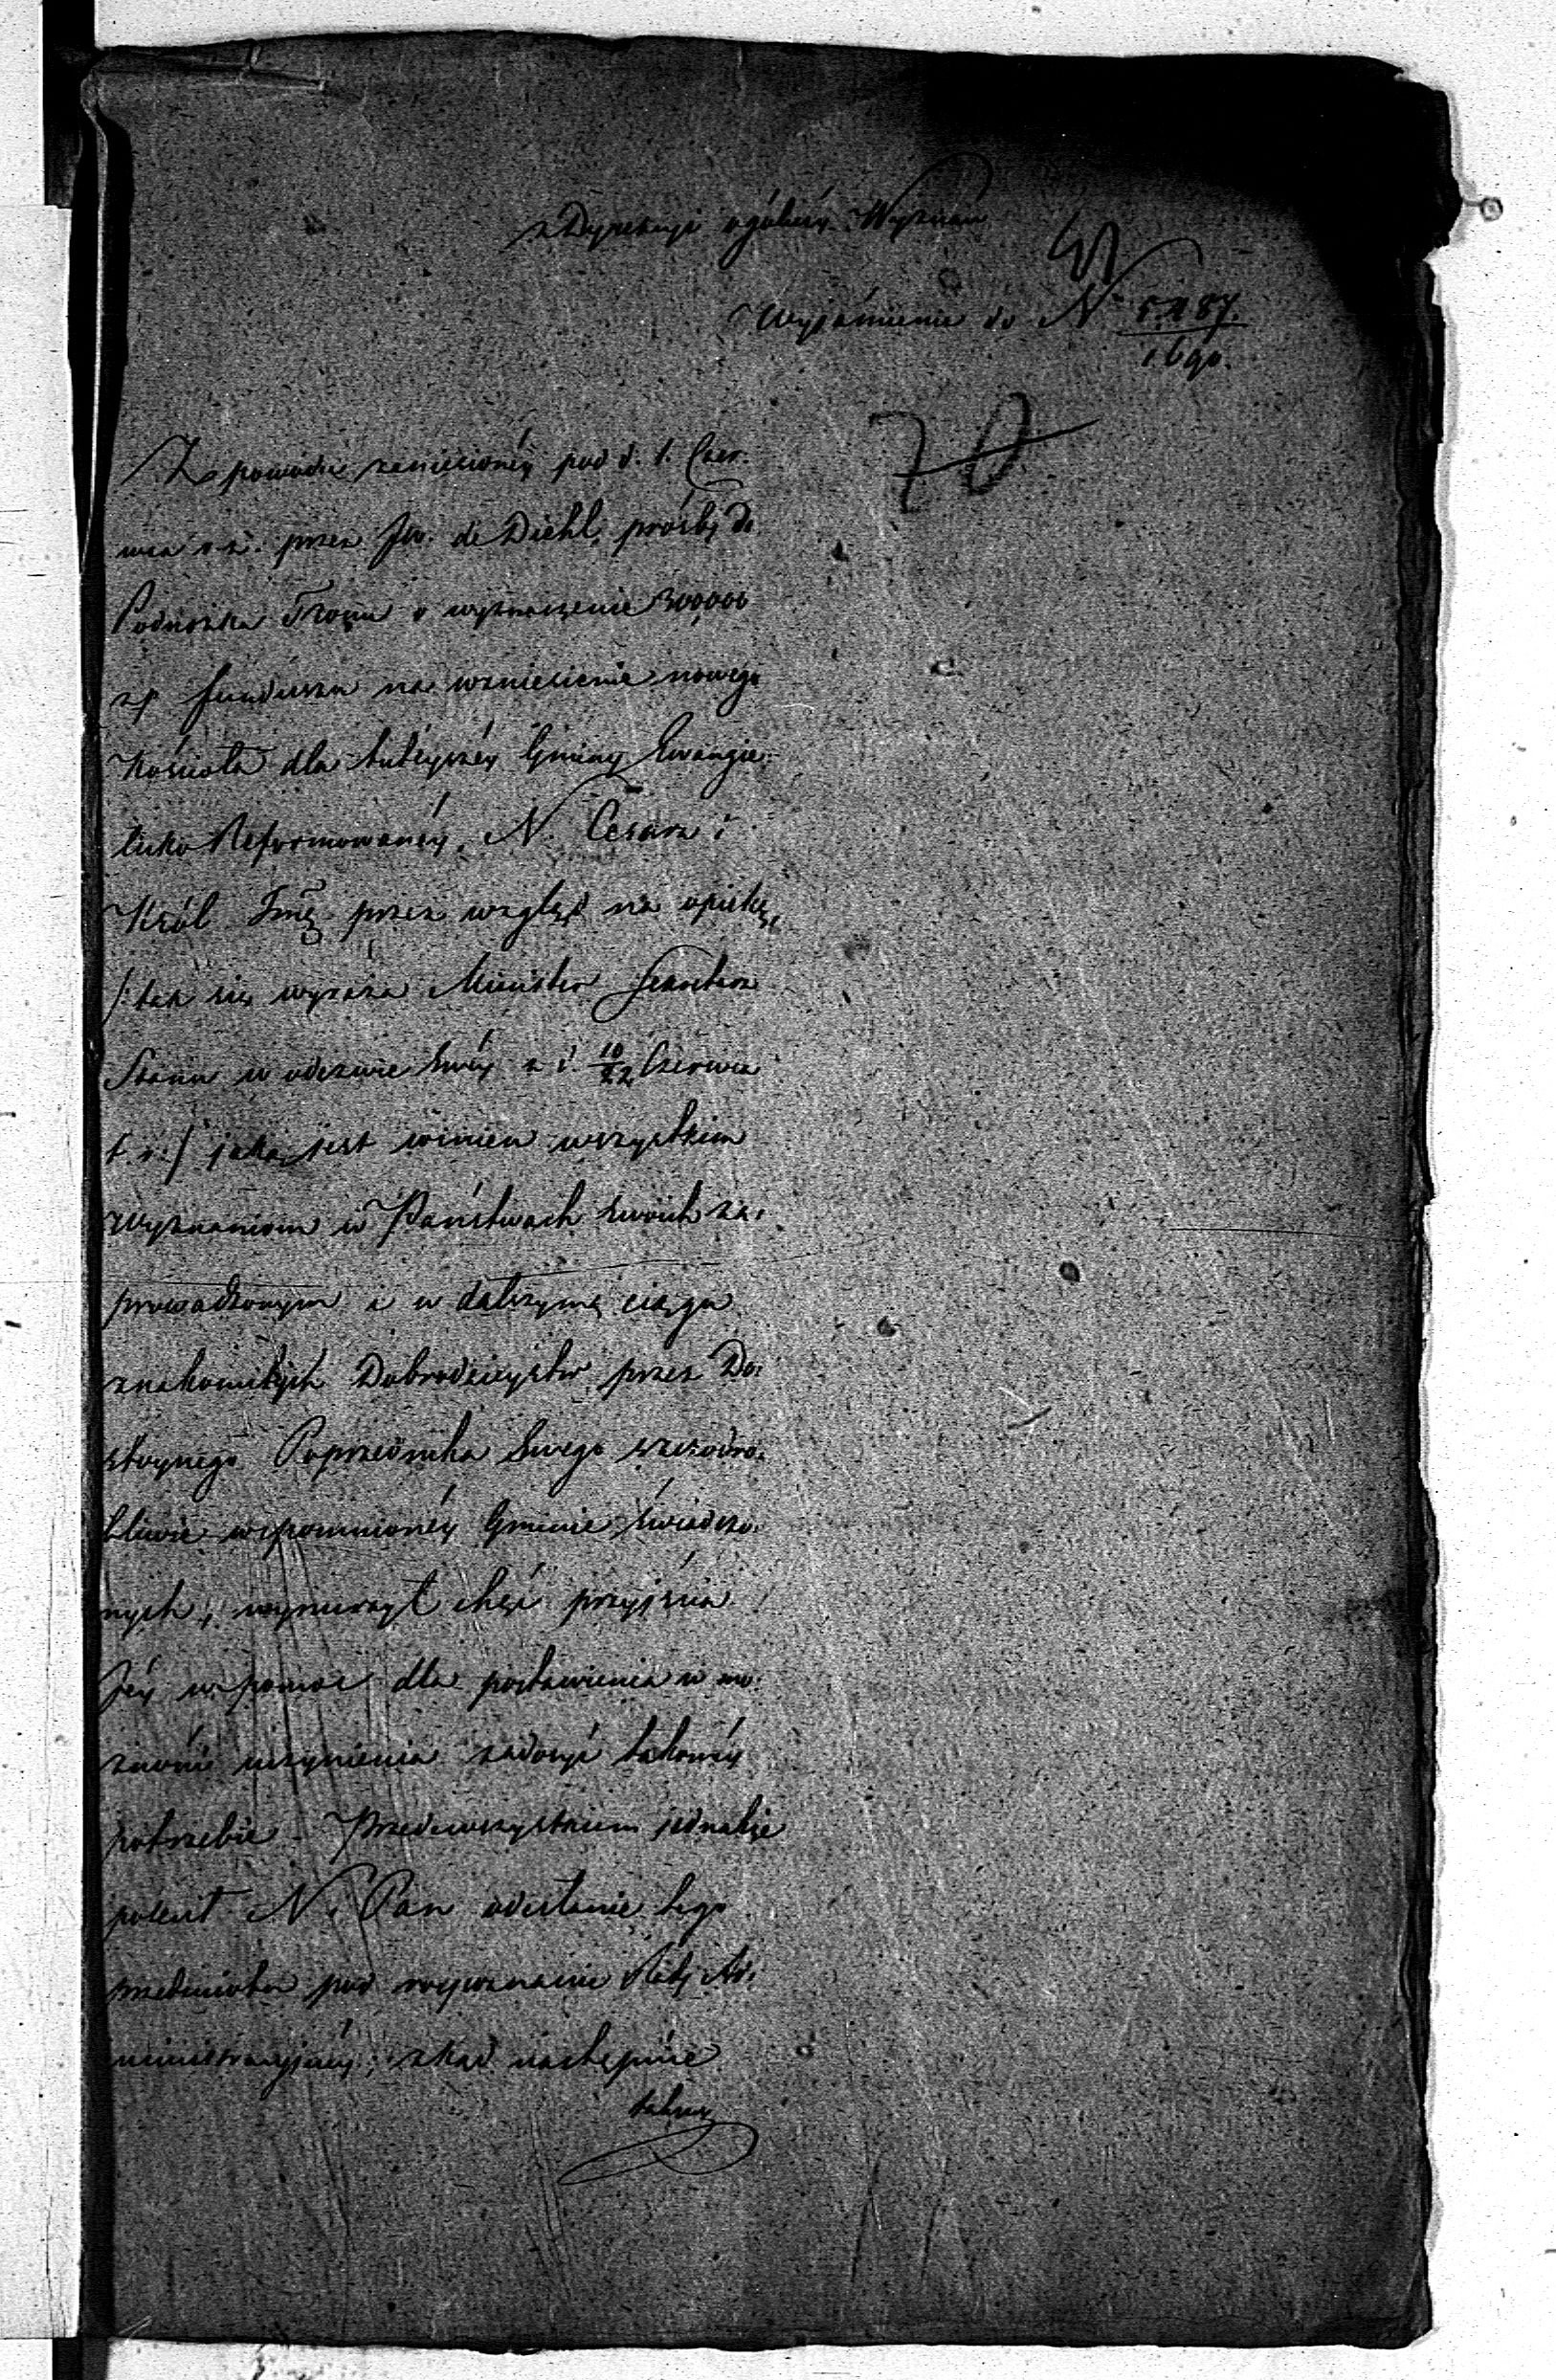 z Dyrekcyi ogólnéy Wyznań
Wyjaśnienie do N 5187.
16go.
70
Z powodu zaniesionéy pod d. 1. Czer-
wca r. z. przez JW. de Diehl, prośby do
Podnóżka Tronu o wyznaczenie 300,000
zł funduszu na wzniesienie nowego
Kościoła dla tuteyszéy Gminy Ewangie-
licko Reformowanéy, N. Cesarz i
Król Jmć przez wzgląd na opiekę,
/: tak się wyraża Minister Sekretarz
Stanu w odezwie swéy z d. 10/22 Czerwca
t. r. :/ jaką jest winien wszystkim
Wyznaniom w Państwach swoich za-
prowadzonym i w dalszym ciągu
znakomitych Dobrodzieystw przez Do-
stoynego Poprzednika Swego szczodro-
bliwie wspomnionéy Gminie świadczo-
nych, wynurzył chęć przyjścia
Jéy w pomoc dla postawienia w mo-
żności uczynienia zadosyć takowéy
potrzebie. Przedewszystkiem jednakże
polecił N. Pan odesłanie tego
przedmiotu pod rozpoznanie Rady Ad-
ministracyjnéy; zkąd następnie